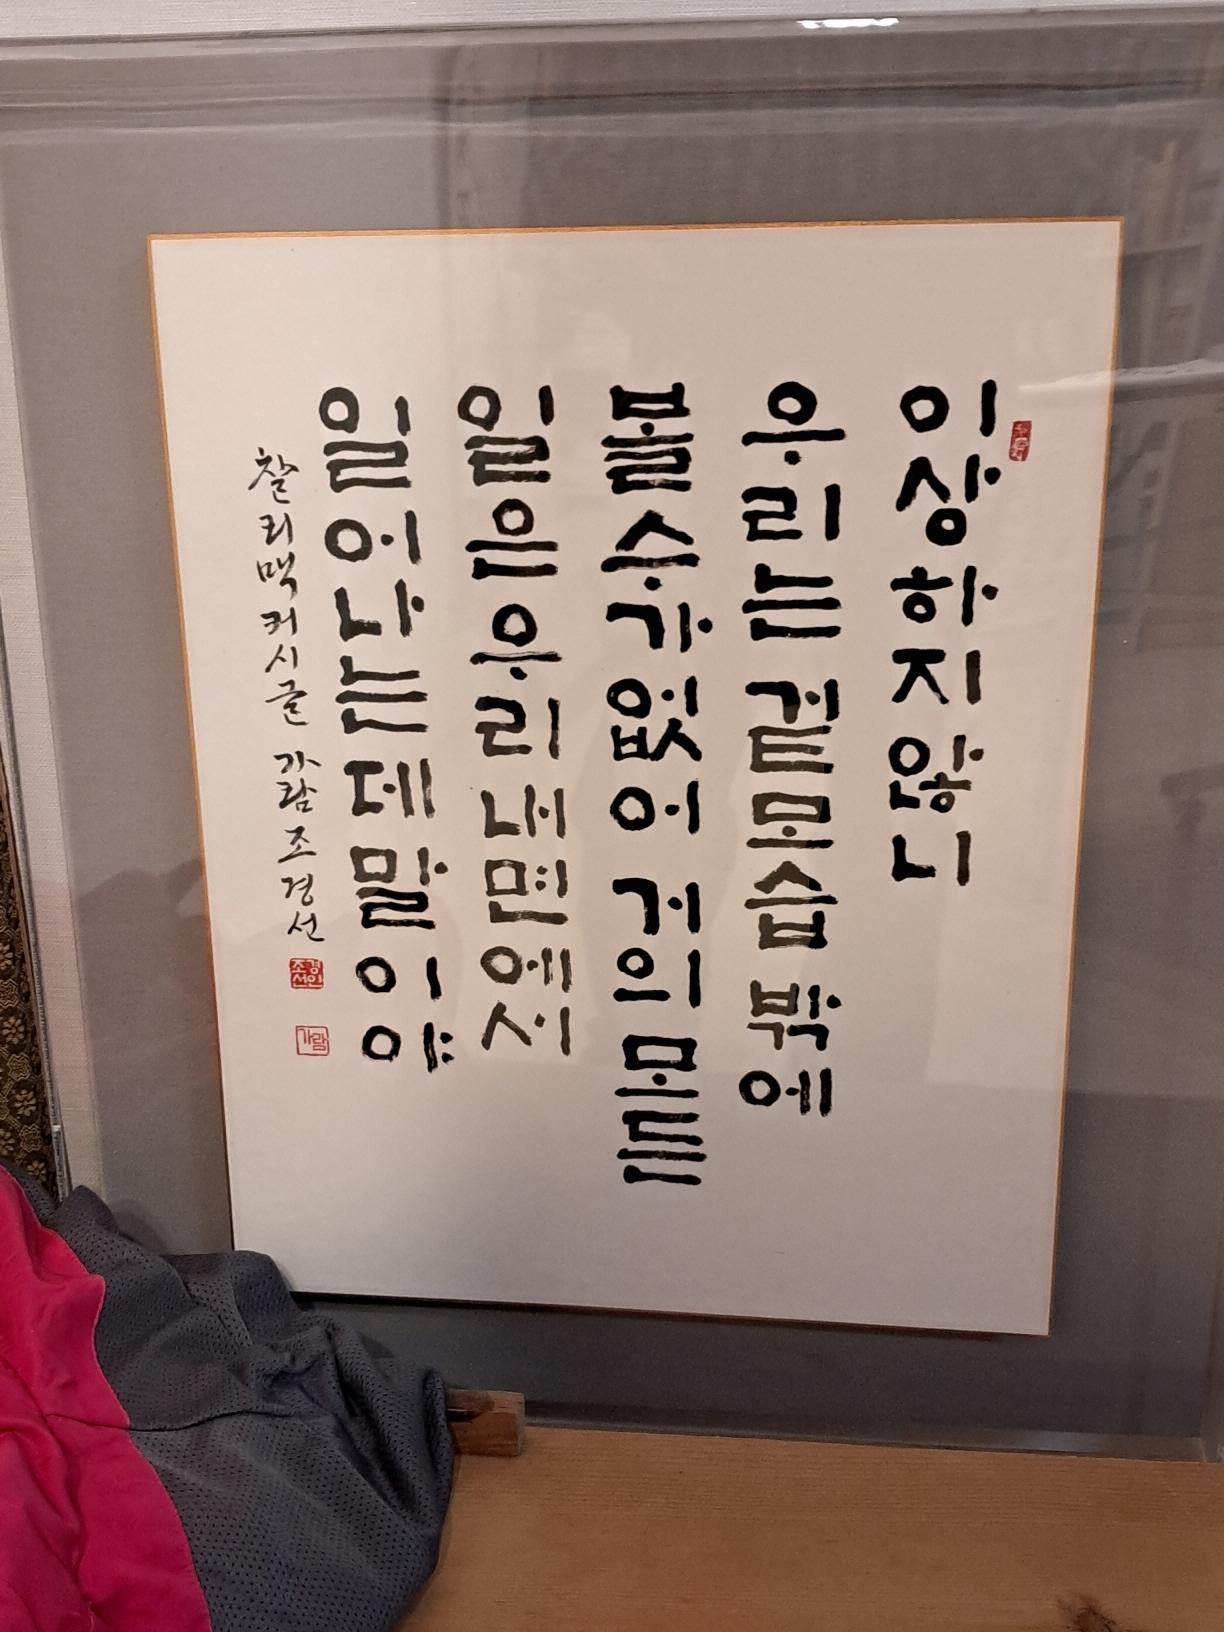 이상하지않니
우리는 겉모습 밖에
볼수가없어 거의모든
일은우리내면에서
일어나는데말이야
찰리맥커시글 가람조경선
조경선인
가람